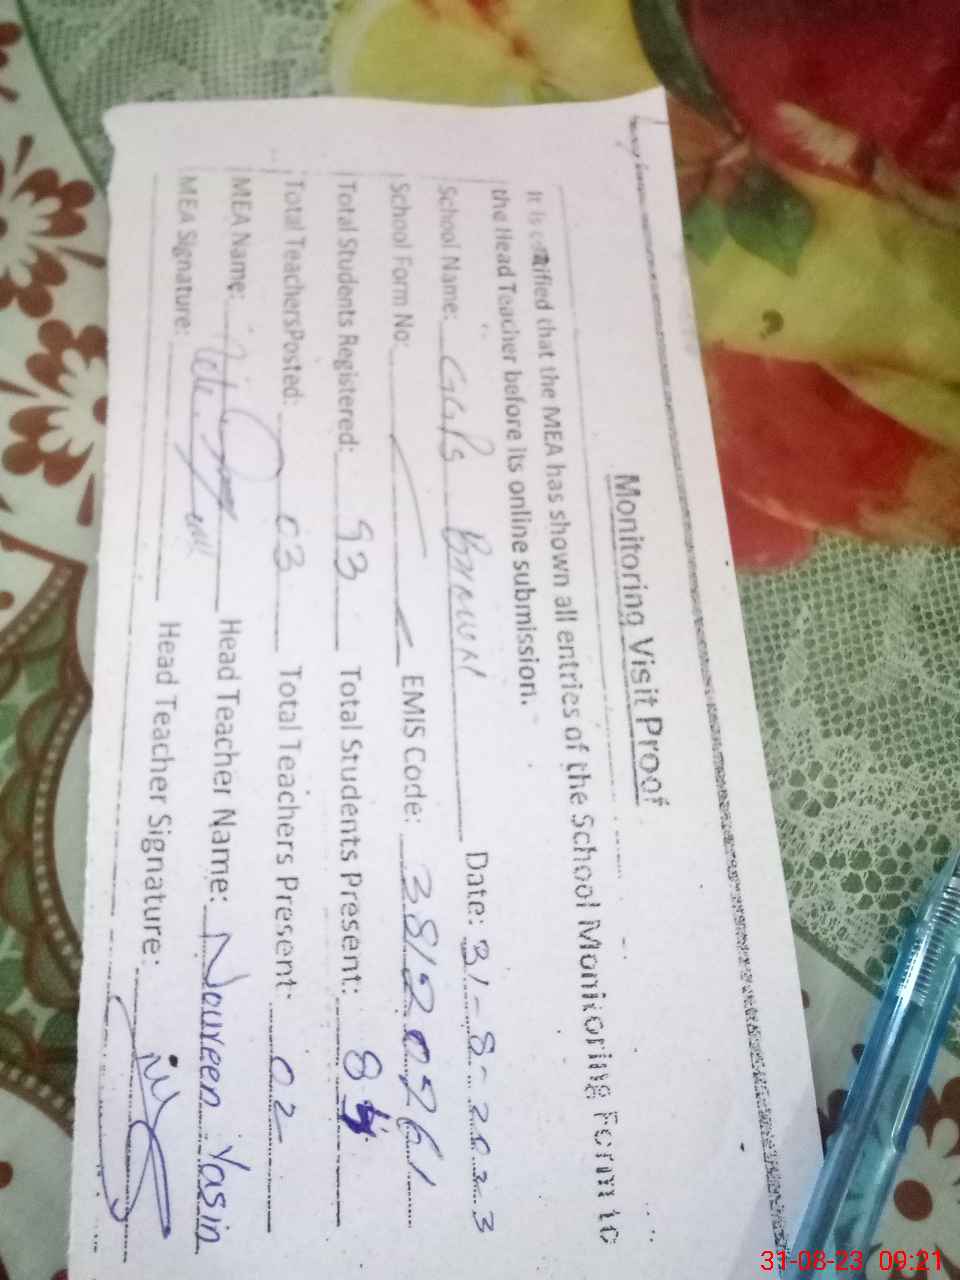 Monitoring Visit Proof
It is certified that the MEA has shown all entries of the School Monitoring Form to
the Head Teacher before its online submission.
School Name: GGPS Date: 31-8-2023
School Form No: EMIS Code: 38120261
Total Students Registered: 93 Total Students Present: 84
Total Teachers Posted: 03 Total Teachers Present: 02
MEA Name: Head Teacher Name: Noureen Yasin
MEA Signature: Head Teacher Signature:
31-08-23 09:21